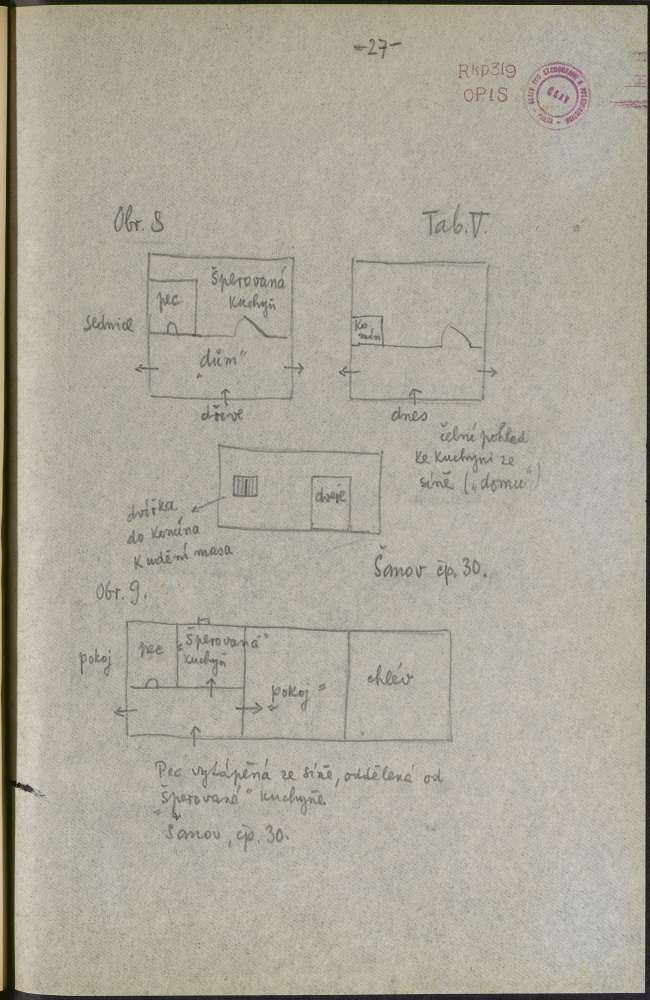 -27-
Rkp 319
OPIS
Obr. 8
Tab. V.
pec
šperovaná
kuchyň
sednice
„dům“
dříve
ko
mín
dnes
čelní pohled
ke kuchyni ze
síně („domu“)
dveře
dvířka
do komína
k udění masa
Šanov čp. 30.
Obr. 9.
pokoj
pec
„šperovaná“
kuchyň
„pokoj“
chlév
Pec vytápěná ze síně, oddělená od
„šperované“ kuchyně.
Šanov, čp. 30.